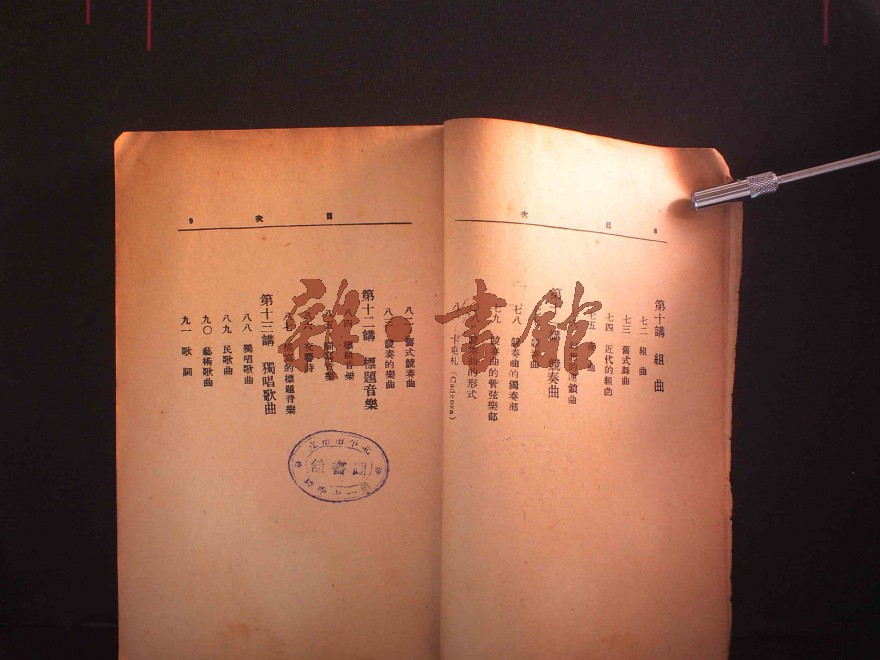 8 目 次
第十講 組曲
七二 組曲
七三 舊式舞曲
七四 近代的組曲
七五 曲
第十 講 競奏曲
七八 競奏曲的獨奏部
七九 競奏曲的管弦樂部
奏曲的形式
八 卡屯札 (Cadenza)
目 次 9
八二 舊式競奏曲
八三 競奏的樂曲
第十二講 標題音樂
八四 標題音樂
八五 音樂
八六 交響詩
八七 的標題音樂
第十三講 獨唱歌曲
八八 獨唱歌曲
八九 民歌曲
九〇 藝術歌曲
九一 歌詞
圖書館
雜·書館